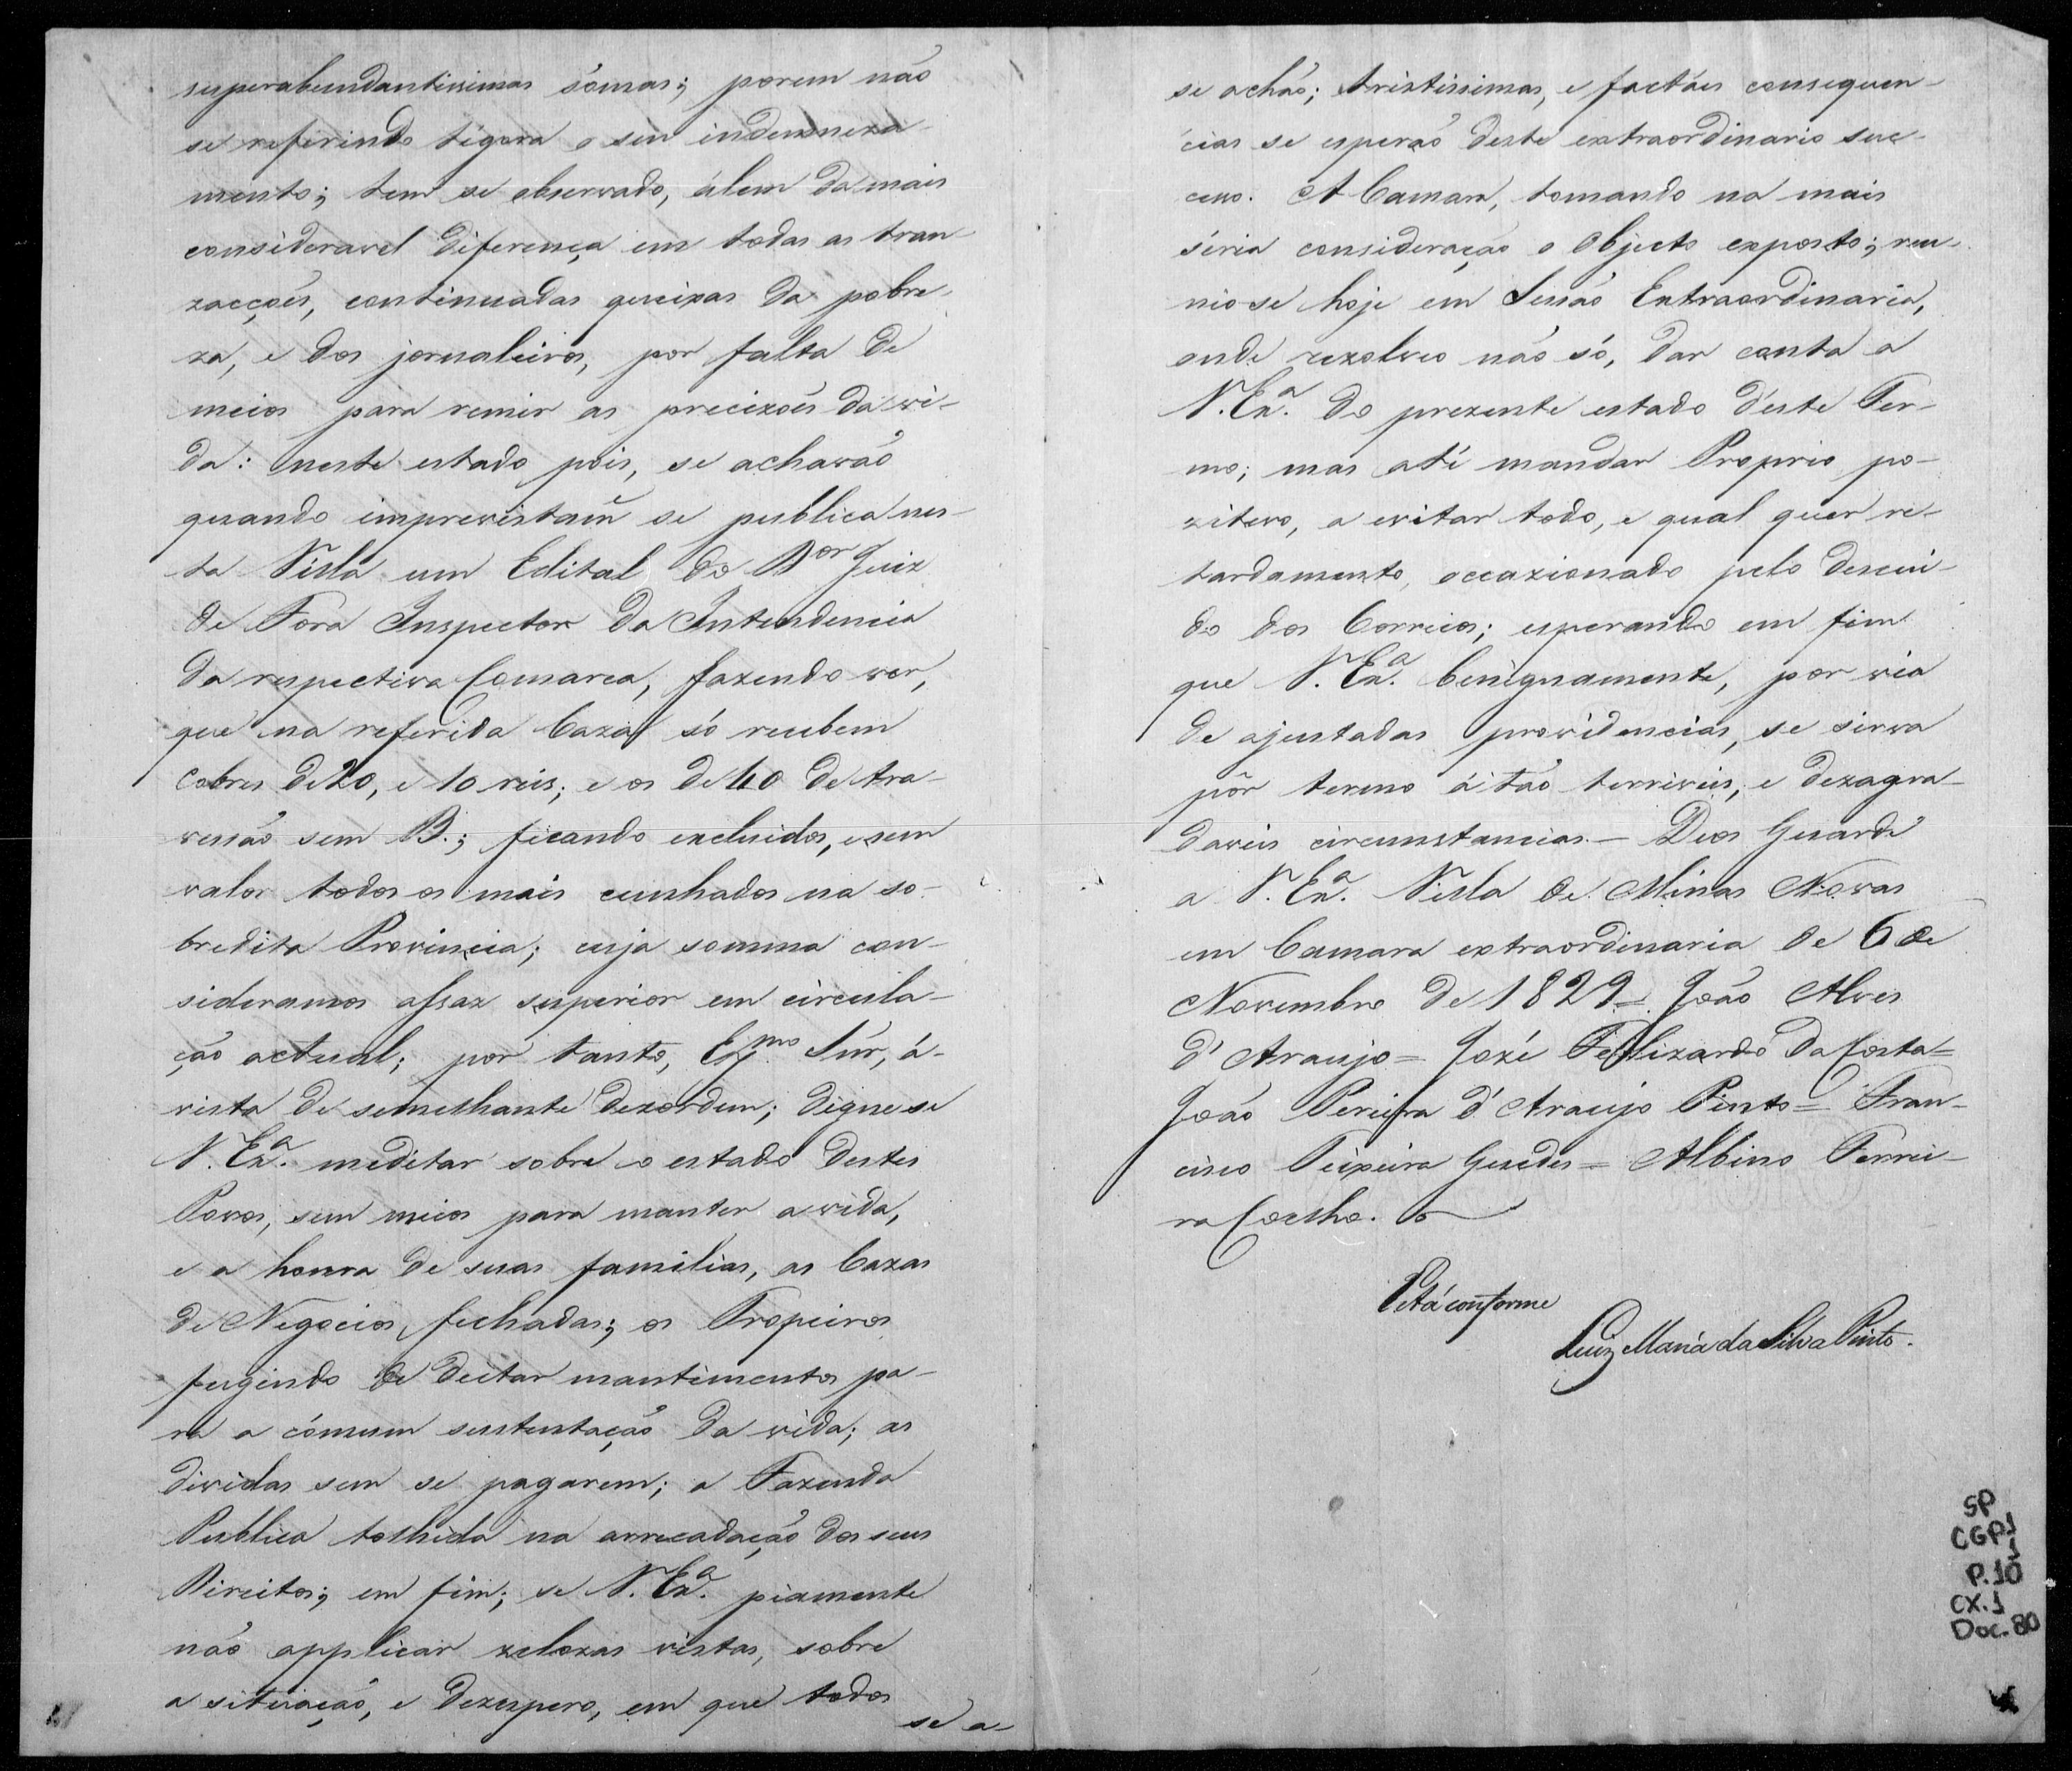 superabundantissimas sómas; porem não
se referindo tigora o seu indemneza-
mento; tem se observado, álem da mais
consideravel diferença em todas as tran
zacções, continuadas queixas da pobre-
za, e dos jornaleiros, por falta de
meios para remir as precizões da vi-
da: neste estado pois, se achavão
quando imprevistam̃ se publica nes-
ta Villa um Edital do Dor Juiz
de Fóra Inspector da Intendencia
da respectiva Comarca, fazendo ver,
que na referida Caza só recebem
Cobres de 20, e 10 reis; e os de 40 de tra-
vessão sem B.; ficando excluidos, e sem
valor todos os mais cunhados na so-
bredita Provincia; cuja somma con-
sideramos assaz superior em circula-
ção actual; por tanto, Exmo Snr, á-
vista de semelhante dezordem; digne se
V. Exa. meditar sobre o estado destes
Povos, sem meios para manter a vida,
e a honra de suas familias, as Cazas
de Negocios, fechadas; os Tropeiros
fugindo de deitar mantimentos pa-
ra a cómum sustentação da vida; as
dividas sem se pagarem; a Fazenda
Publica tolhida na arrecadação dos seus
Direitos; em fim; se V. Exa. piamente
não applicar zelozas vistas, sobre
a situação, e dezespero, em que todos
se a-
se achão; tristissimas, e factáes consequen-
cias se esperão deste extraordinario suc-
cesso. A Camara, tomando na mais
séria consideração o Objecto exposto; reu-
nio-se hoje em Sessão Extraordinaria,
onde rezolveo não só, dar conta a
V. Exa. do prezente estado d'este Ter-
mo; mas até mandar Proprio po-
zitivo, a evitar todo, e qual quer re-
tardamento, occazionado pelo descui-
do dos Correios; esperando em fim
que V. Exa. benignamente, por via
de ajustadas providencias, se sirva
pôr termo á tão terriveis, e dezagra-
daveis circumstancias.- Deos Guarde
a V. Exa. Villa de Minas Novas
em Camara extraordinaria de 6 de
Novembro de 1829= João Alves
d'Araujo= Jozé Fellizardo da Costa=
João Pereira d'Araujo Pinto= Fran-
cisco Teixeira Guedes= Albino Ferrei-
ra Coelho.
Está conforme
Luiz Maria da Silva Pinto.
SP
CGP1
1
P.10
CX.1
Doc. 80